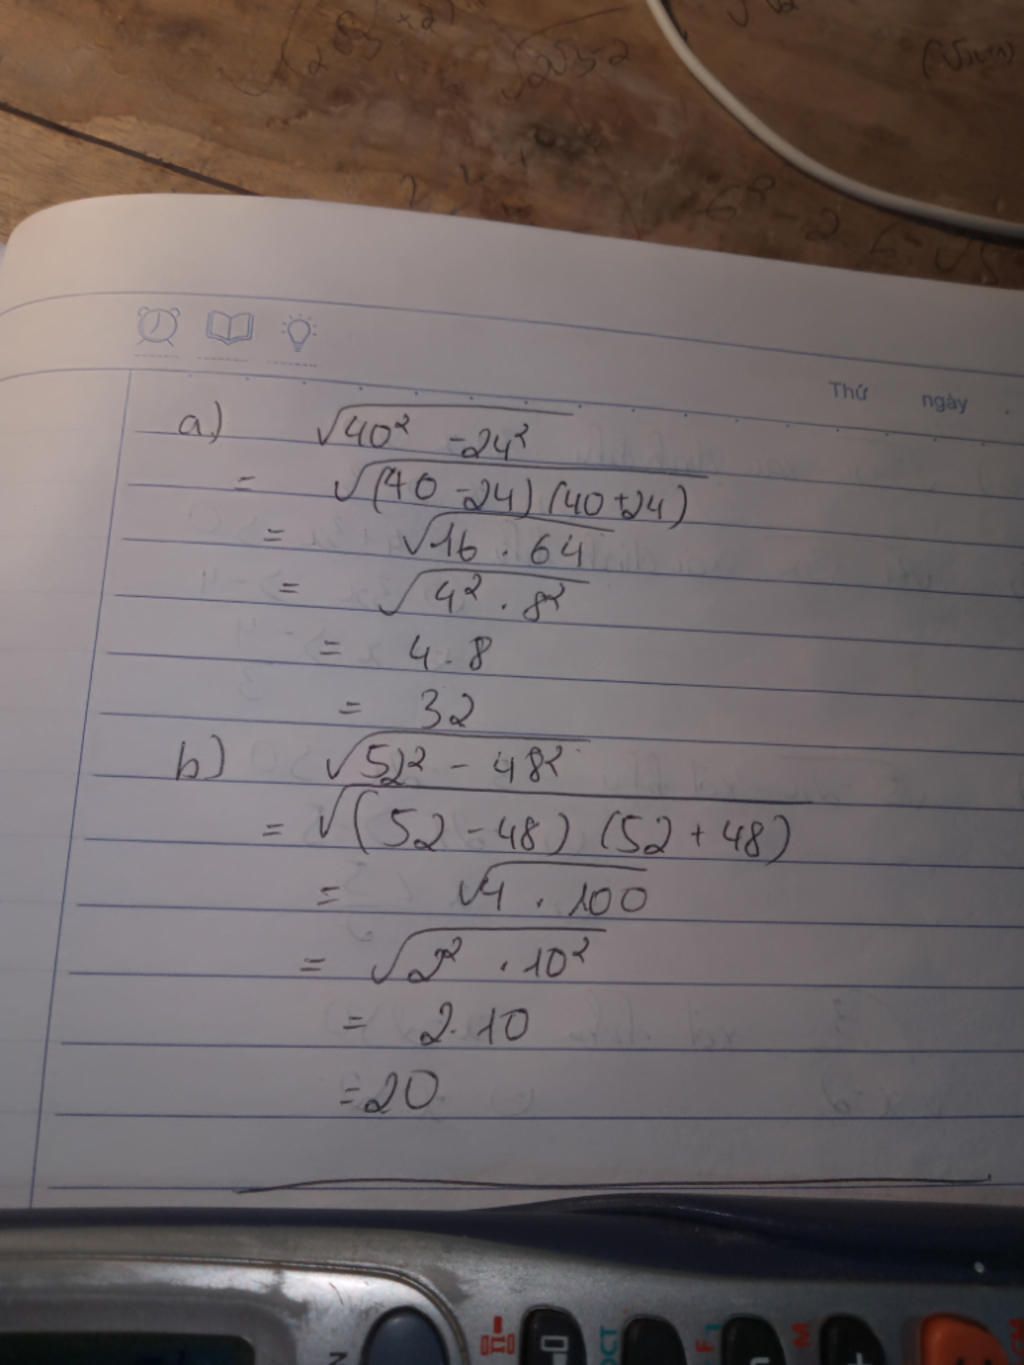 Thứ ngày
a) √40² - 24²
= √(40 - 24) (40 + 24)
= √16 . 64
= √4² . 8²
= 4 . 8
= 32
b) √52² - 48²
= √(52 - 48) (52 + 48)
= √4 . 100
= √2² . 10²
= 2 . 10
= 20
M